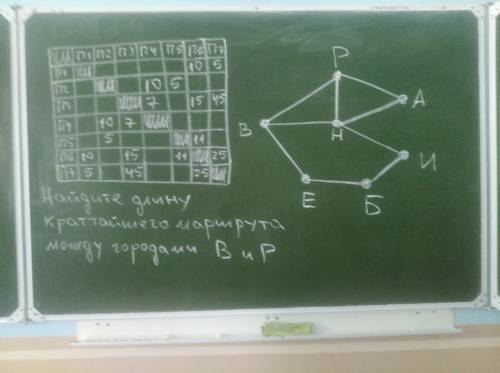 П1 П2 П3 П4 П5 П6 П7
П1 10 5
П2 10 5
П3 7 15 45
П4 10 7
П5 5 11
П6 10 15 11 25
П7 5 45 25
Р
А
В
Н
И
Е
Б
Найдите длину
кратчайшего маршрута
между городами В и Р